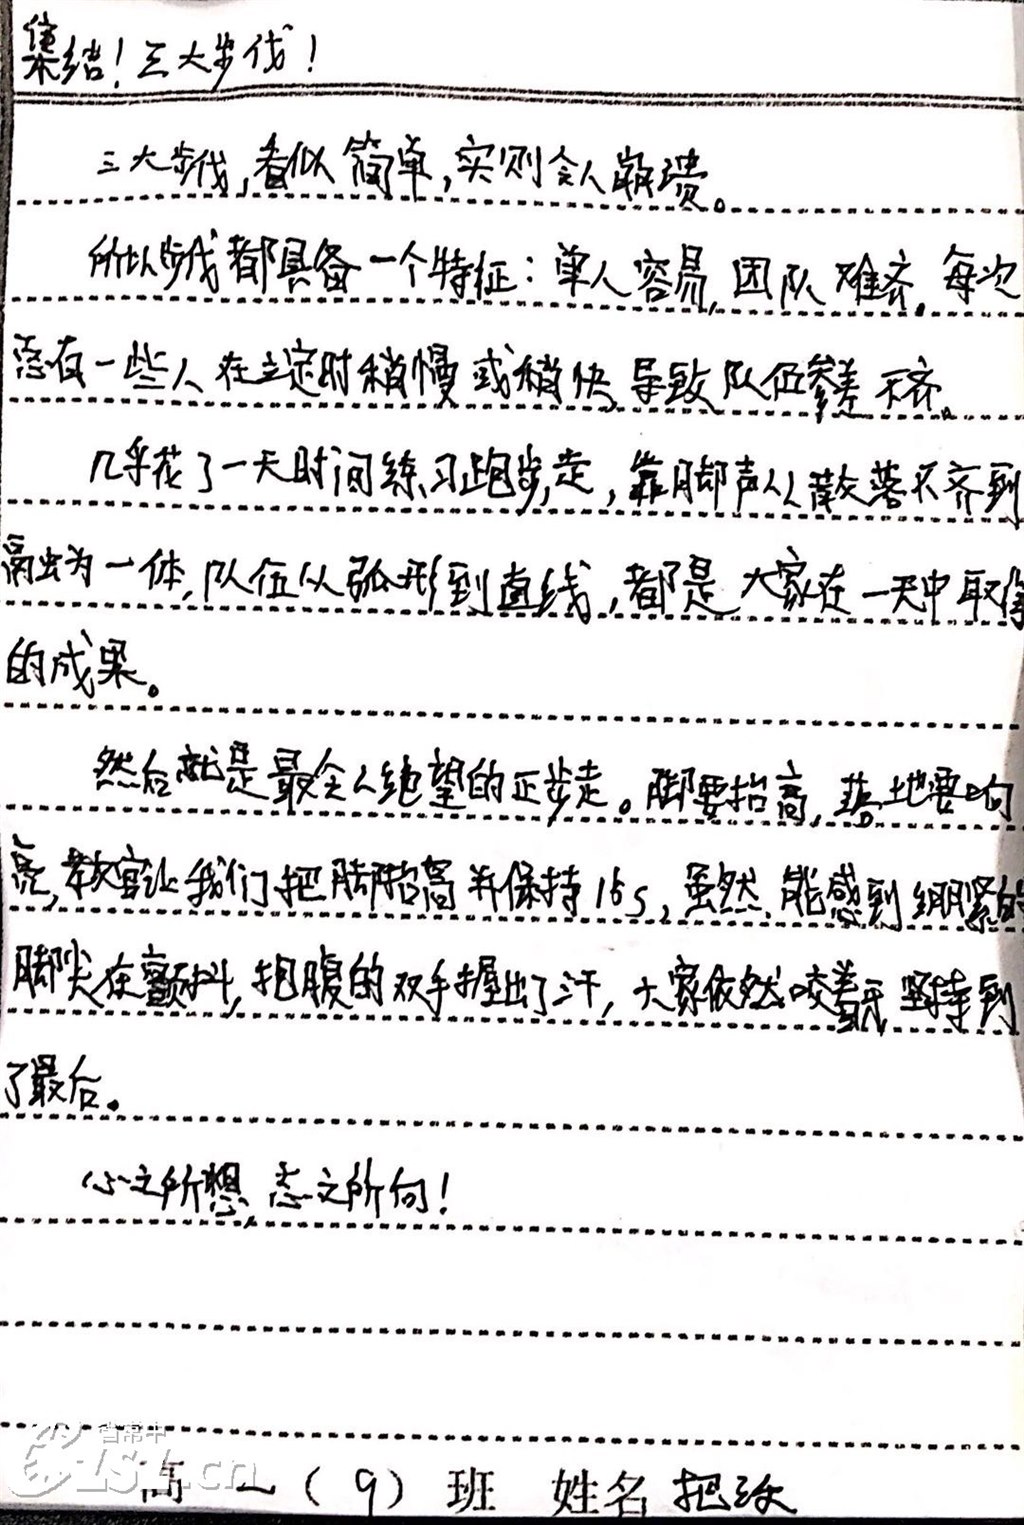 集结！三大步伐！
三大步伐，看似简单，实则令人崩溃。
所以步伐都具备一个特征：单人容易，团队难齐。每次
总有一些人在立定时稍慢或稍快，导致队伍参差不齐。
几乎花了一天时间练习跑步走，靠脚声从散落不齐到
融为一体，队伍从弧形到直线，都是大家在一天中取得
的成果。
然后就是最令人绝望的正步走。脚要抬高，落地要响
亮，教官让我们把脚抬高并保持16s，虽然能感到绷紧的
脚尖在颤抖，把腹的双手握出了汗，大家依然咬着牙坚持到
了最后。
心之所想，志之所向！
省常中
ZSZ.cn
高一（9）班 姓名